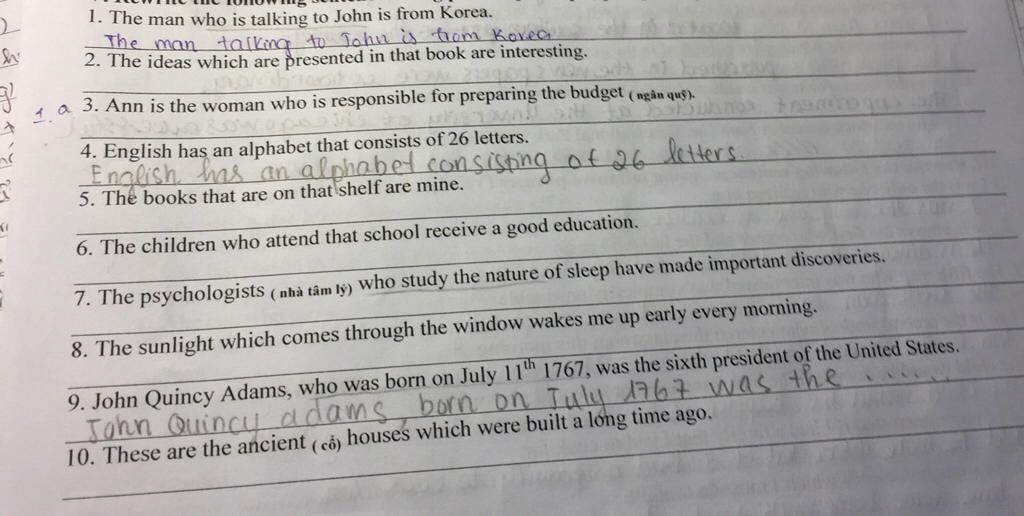 1. The man who is talking to John is from Korea.
The man talking to John is from Korea
2. The ideas which are presented in that book are interesting.
1. a 3. Ann is the woman who is responsible for preparing the budget ( ngân quỹ).
4. English has an alphabet that consists of 26 letters.
English has an alphabet consisting of 26 letters.
5. The books that are on that shelf are mine.
6. The children who attend that school receive a good education.
7. The psychologists ( nhà tâm lý) who study the nature of sleep have made important discoveries.
8. The sunlight which comes through the window wakes me up early every morning.
9. John Quincy Adams, who was born on July 11th 1767, was the sixth president of the United States.
John Quincy adams, born on July 1767 was the .....
10. These are the ancient ( cổ) houses which were built a long time ago.